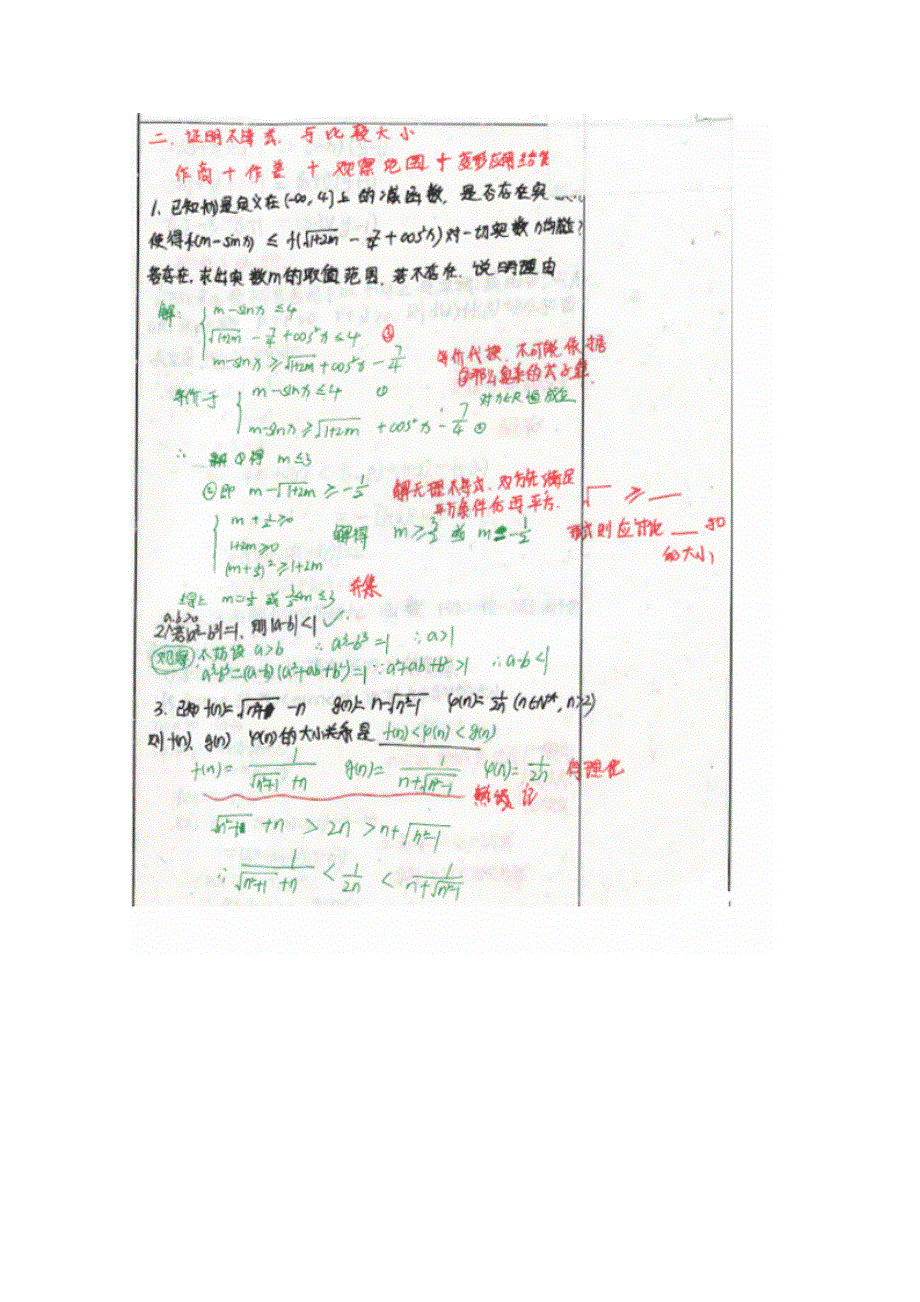 二、证明不等式、与比较大小
作商+作差 + 观察范围+变形应用结果
1.已知f(x)是定义在(-∞,4]上的减函数,是否存在实
使得f(m-sinx) ≤ f(√(1+2m) - 7/4 + cos²x)对一切实数x均成立?
若存在,求出实数m的取值范围,若不存在,说明理由
解: m-sinx≤4
√(1+2m) - 7/4 + cos²x≤4 ③
m-sinx≥√(1+2m)+cos²x - 7/4
等价代换,不可能依据
等价于 m-sinx≤4 ①
对x∈R恒成立
m-sinx≥√(1+2m) + cos²x - 7/4 ②
∴ 解①得 m≤3
②即 m-√(1+2m)≥-1/2
解无理不等式,
平方条件后再平方.
√ ≥ __
形式则应讨论 __ 与0
的大小
m+1/2≥0
1+2m≥0
(m+1/2)²≥1+2m
解得 m≥3/2 或 m=-1/2
综上 m=-1/2 或 3/2≤m≤3 并集
a.b>0
2.若|a³-b³|=1,则|a-b|<1 ✓
观察 不妨设 a>b ∴a³-b³=1 ∴a>1
a³-b³=(a-b)(a²+ab+b²)=1 ∵a²+ab+b²>1 ∴a-b<1
3.已知f(n)=√(n²+1) -n g(n)=n-√(n²-1) φ(n)=1/2n (n∈N*,n>2)
则f(n)、g(n) φ(n)的大小关系是 f(n)<φ(n)<g(n)
f(n)= 1/(√(n²+1)+n) g(n)= 1/(n+√(n²-1)) φ(n)= 1/2n 有理化
√(n²+1) +n > 2n >n+√(n²-1)
∴ 1/(√(n²+1)+n) < 1/2n < 1/(n+√(n²-1))